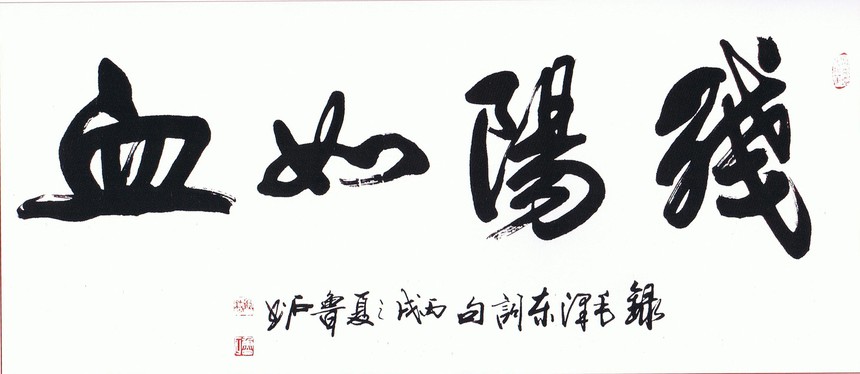 殘陽如血
錄毛澤东詞句丙戌之夏魯